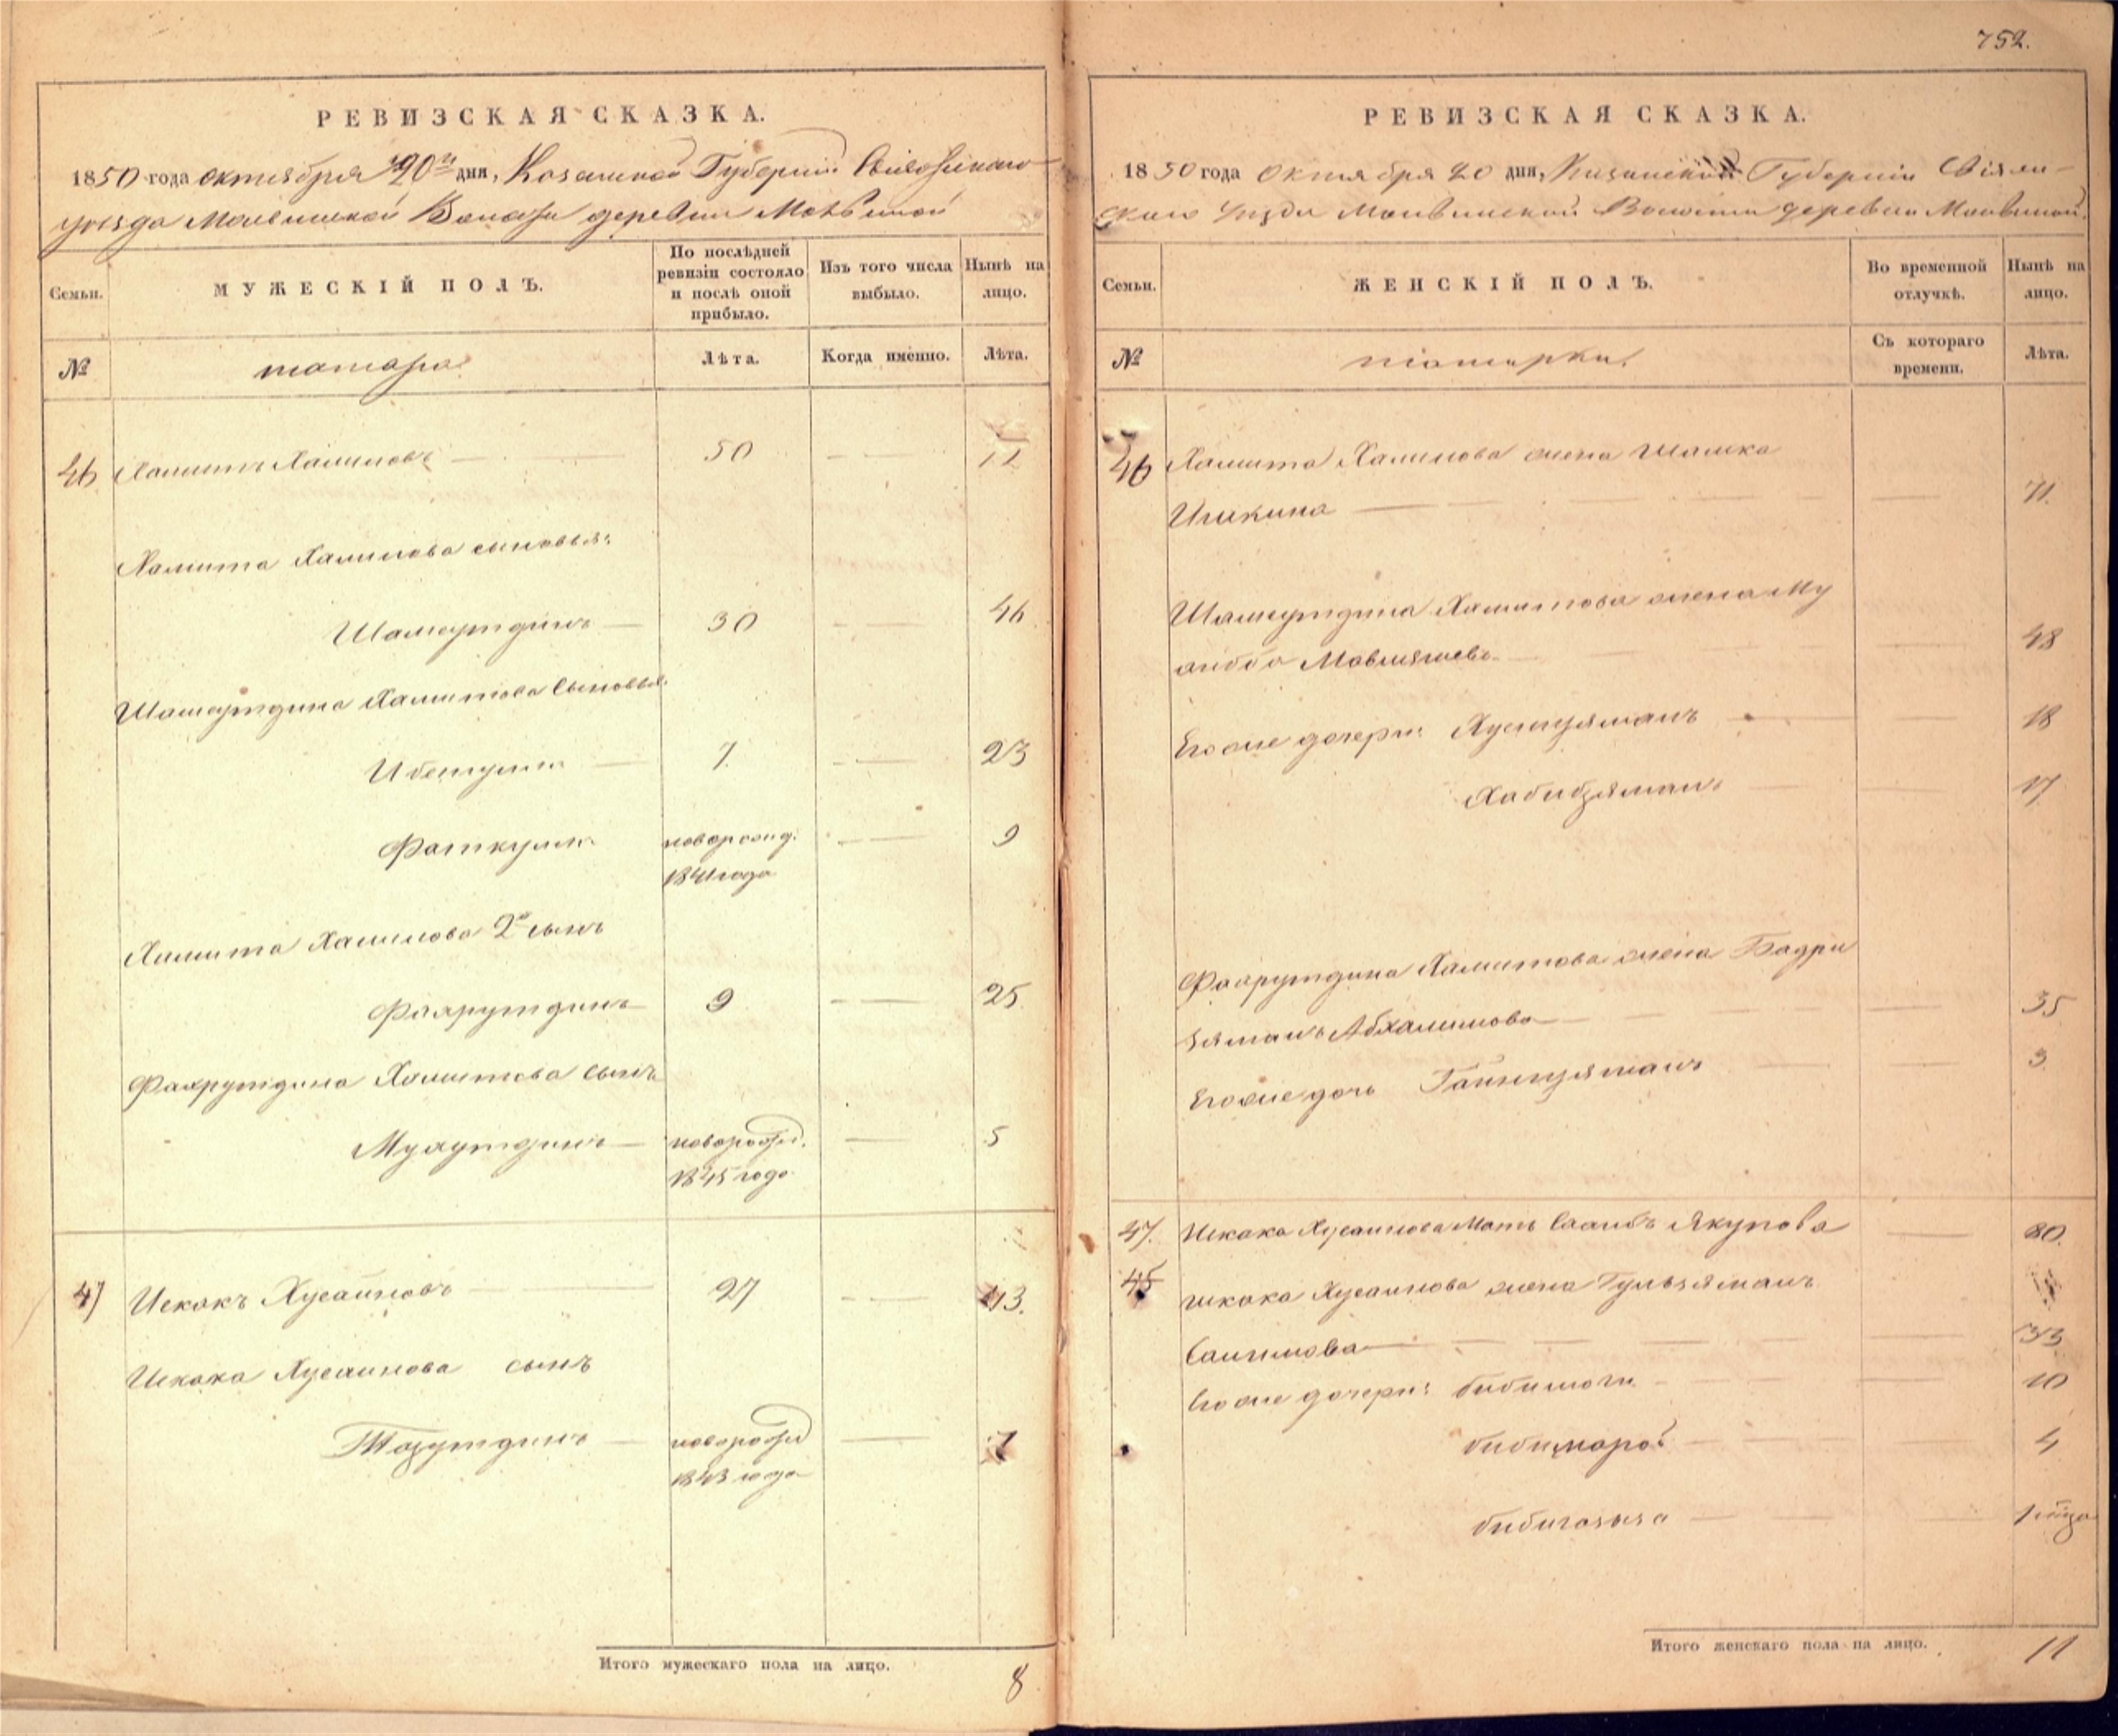 752.
РЕВИЗСКАЯ СКАЗКА.
1850 года октября 20 дня, Казанской Губернии Свіяжскаго
уезда Волости деревни
Семьи.
МУЖЕСКІЙ ПОЛЪ.
По послѣдней
ревизіи состояло
и послѣ оной
прибыло.
Изъ того числа
выбыло.
Нынѣ на
лицо.
№
татара
Лѣта.
Когда именно.
Лѣта.
46 Хамитъ Халиловъ 50
Хамита Халилова сыновья:
Шамсутдинъ 30 46
Шамсутдина Хамитова сыновья
7 23
Фаткулла новорожд. 9
1841 года
Хамита Халилова 2й сынъ
Фахрутдинъ 9 25
Фахрутдина Хамитова сынъ
Мухутдинъ новорожд. 5
1845 года
47 Исхакъ Хусаиновъ 27 43.
Исхака Хусаинова сынъ
Тазутдинъ новорожд 7
1843 года
Итого мужескаго пола на лицо. 8
РЕВИЗСКАЯ СКАЗКА.
1850 года Октября 20 дня, Казанской Губерніи Свіяж-
скаго Уезда Волости деревни
Семьи.
ЖЕНСКІЙ ПОЛЪ.
Во временной
отлучкѣ.
Нынѣ на
лицо.
№
татарки.
Съ котораго
времени.
Лѣта.
46 Хамита Халилова жена
71.
Шамсутдина Хамитова жена Му
48
Его же дочери: Хуснизяманъ 18
Хабибзяманъ 17
Фахрутдина Хамитова жена Бадри
зяманъ Абхалилова 35
Его же дочь Гайнизяманъ 3
47. Исхака Хусаинова Мать Сахибъ Якупова 80.
45 Исхака Хусаинова жена Гульзяманъ
Салимова 33
Его же дочери: 10
4
1
Итого женскаго пола на лицо. 11